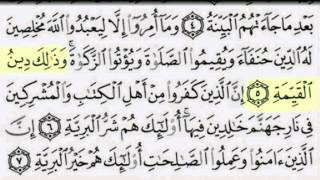 بَعْدِ مَا جَآءَتْهُمُ ٱلْبَيِّنَةُ ٤ وَمَآ أُمِرُوٓا۟ إِلَّا لِيَعْبُدُوا۟ ٱللَّهَ مُخْلِصِينَ
لَهُ ٱلدِّينَ حُنَفَآءَ وَيُقِيمُوا۟ ٱلصَّلَوٰةَ وَيُؤْتُوا۟ ٱلزَّكَوٰةَ وَذَٰلِكَ دِينُ
ٱلْقَيِّمَةِ ٥ إِنَّ ٱلَّذِينَ كَفَرُوا۟ مِنْ أَهْلِ ٱلْكِتَٰبِ وَٱلْمُشْرِكِينَ
فِى نَارِ جَهَنَّمَ خَٰلِدِينَ فِيهَآ أُو۟لَٰٓئِكَ هُمْ شَرُّ ٱلْبَرِيَّةِ ٦ إِنَّ
ٱلَّذِينَ ءَامَنُوا۟ وَعَمِلُوا۟ ٱلصَّٰلِحَٰتِ أُو۟لَٰٓئِكَ هُمْ خَيْرُ ٱلْبَرِيَّةِ ٧